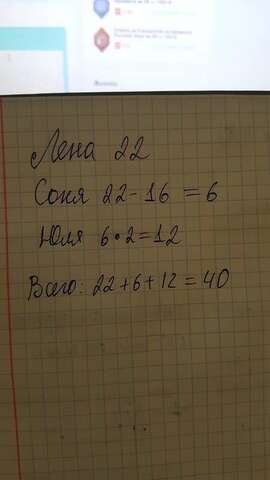 Лена 22
Соня 22-16 = 6
Юля 6•2=12
Всего: 22+6+12=40